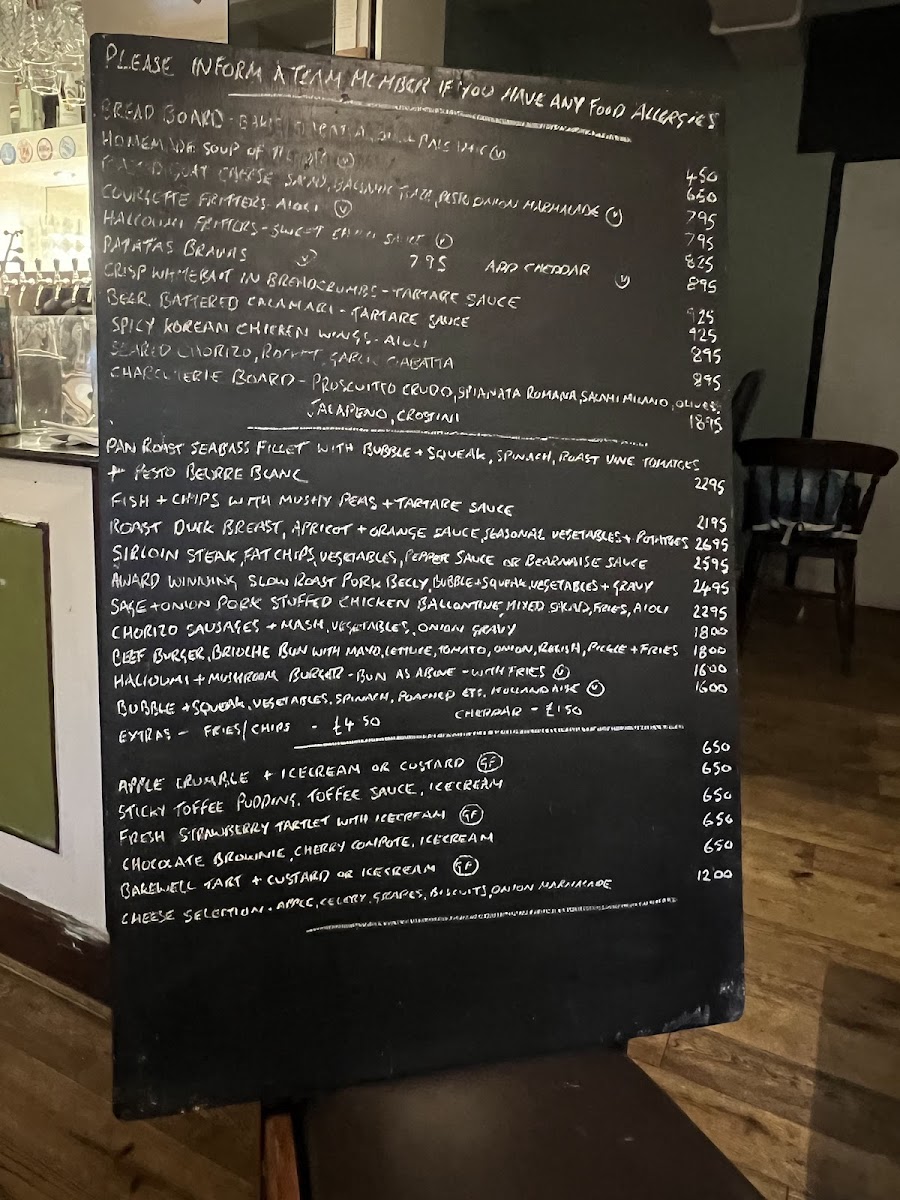 PLEASE INFORM A TEAM MEMBER IF YOU HAVE ANY FOOD ALLERGIES
BREAD BOARD - BALSAMIC V 450
HOMEMADE SOUP OF THE V 650
GOAT CHEESE SALAD, BALSAMIC GLAZE, PESTO ONION MARMALADE V 795
COURGETTE FRITTERS - AIOLI V 795
HALLOUMI FRITTERS - SWEET CHILLI SAUCE V 825
PATATAS BRAVAS V 795 ADD CHEDDAR V 895
CRISP WHITEBAIT IN BREADCRUMBS - TARTARE SAUCE 925
BEER BATTERED CALAMARI - TARTARE SAUCE 925
SPICY KOREAN CHICKEN WINGS - AIOLI 895
SEARED CHORIZO, ROCKET, GARLIC CIABATTA 895
CHARCUTERIE BOARD - PROSCUITTO CRUDO, SPIANATA ROMANA, SALAMI MILANO, OLIVES,
JALAPENO, CROSTINI 1895
PAN ROAST SEABASS FILLET WITH BUBBLE + SQUEAK, SPINACH, ROAST VINE TOMATOES
+ PESTO BEURRE BLANC 2295
FISH + CHIPS WITH MUSHY PEAS + TARTARE SAUCE 2195
ROAST DUCK BREAST, APRICOT + ORANGE SAUCE, SEASONAL VEGETABLES + POTATOES 2695
SIRLOIN STEAK, FAT CHIPS, VEGETABLES, PEPPER SAUCE OR BEARNAISE SAUCE 2595
AWARD WINNING SLOW ROAST PORK BELLY, BUBBLE + SQUEAK, VEGETABLES + GRAVY 2495
SAGE + ONION PORK STUFFED CHICKEN BALLONTINE MIXED SALAD, FRIES, AIOLI 2295
CHORIZO SAUSAGES + MASH, VEGETABLES, ONION GRAVY 1800
BEEF BURGER, BRIOCHE BUN WITH MAYO, LETTUCE, TOMATO, ONION, RELISH, PICKLE + FRIES 1800
HALLOUMI + MUSHROOM BURGER - BUN AS ABOVE - WITH FRIES V 1600
BUBBLE + SQUEAK, VEGETABLES, SPINACH, POACHED EGG, HOLLANDAISE V 1600
EXTRAS - FRIES/CHIPS - £4 50 CHEDDAR - £1 50
APPLE CRUMBLE + ICECREAM OR CUSTARD GF 650
STICKY TOFFEE PUDDING, TOFFEE SAUCE, ICECREAM 650
FRESH STRAWBERRY TARTLET WITH ICECREAM GF 650
CHOCOLATE BROWNIE, CHERRY COMPOTE, ICECREAM 650
BAKEWELL TART + CUSTARD OR ICECREAM GF 650
CHEESE SELECTION - APPLE, CELERY, GRAPES, BISCUITS, ONION MARMALADE 1200